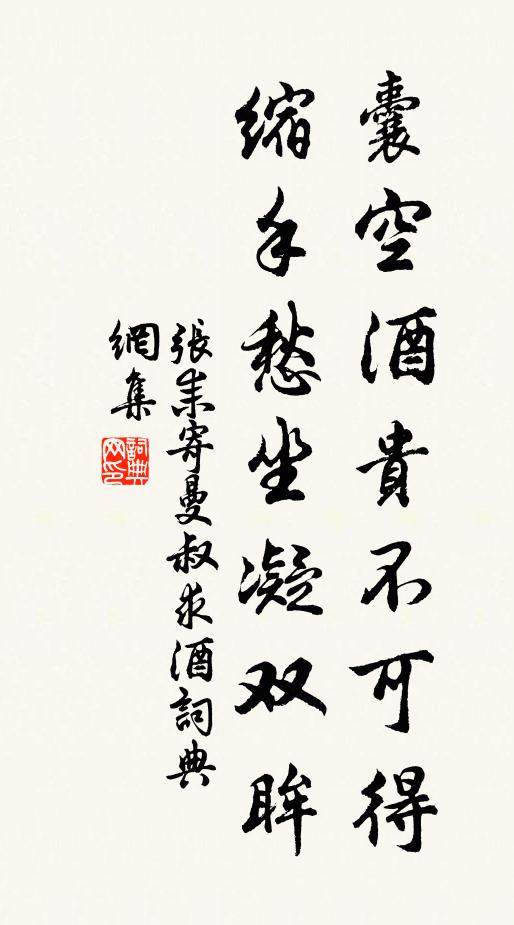 囊空酒貴不可得
縮手愁坐凝双眸
張耒寄曼叔求酒詞典
網集
詞典网印